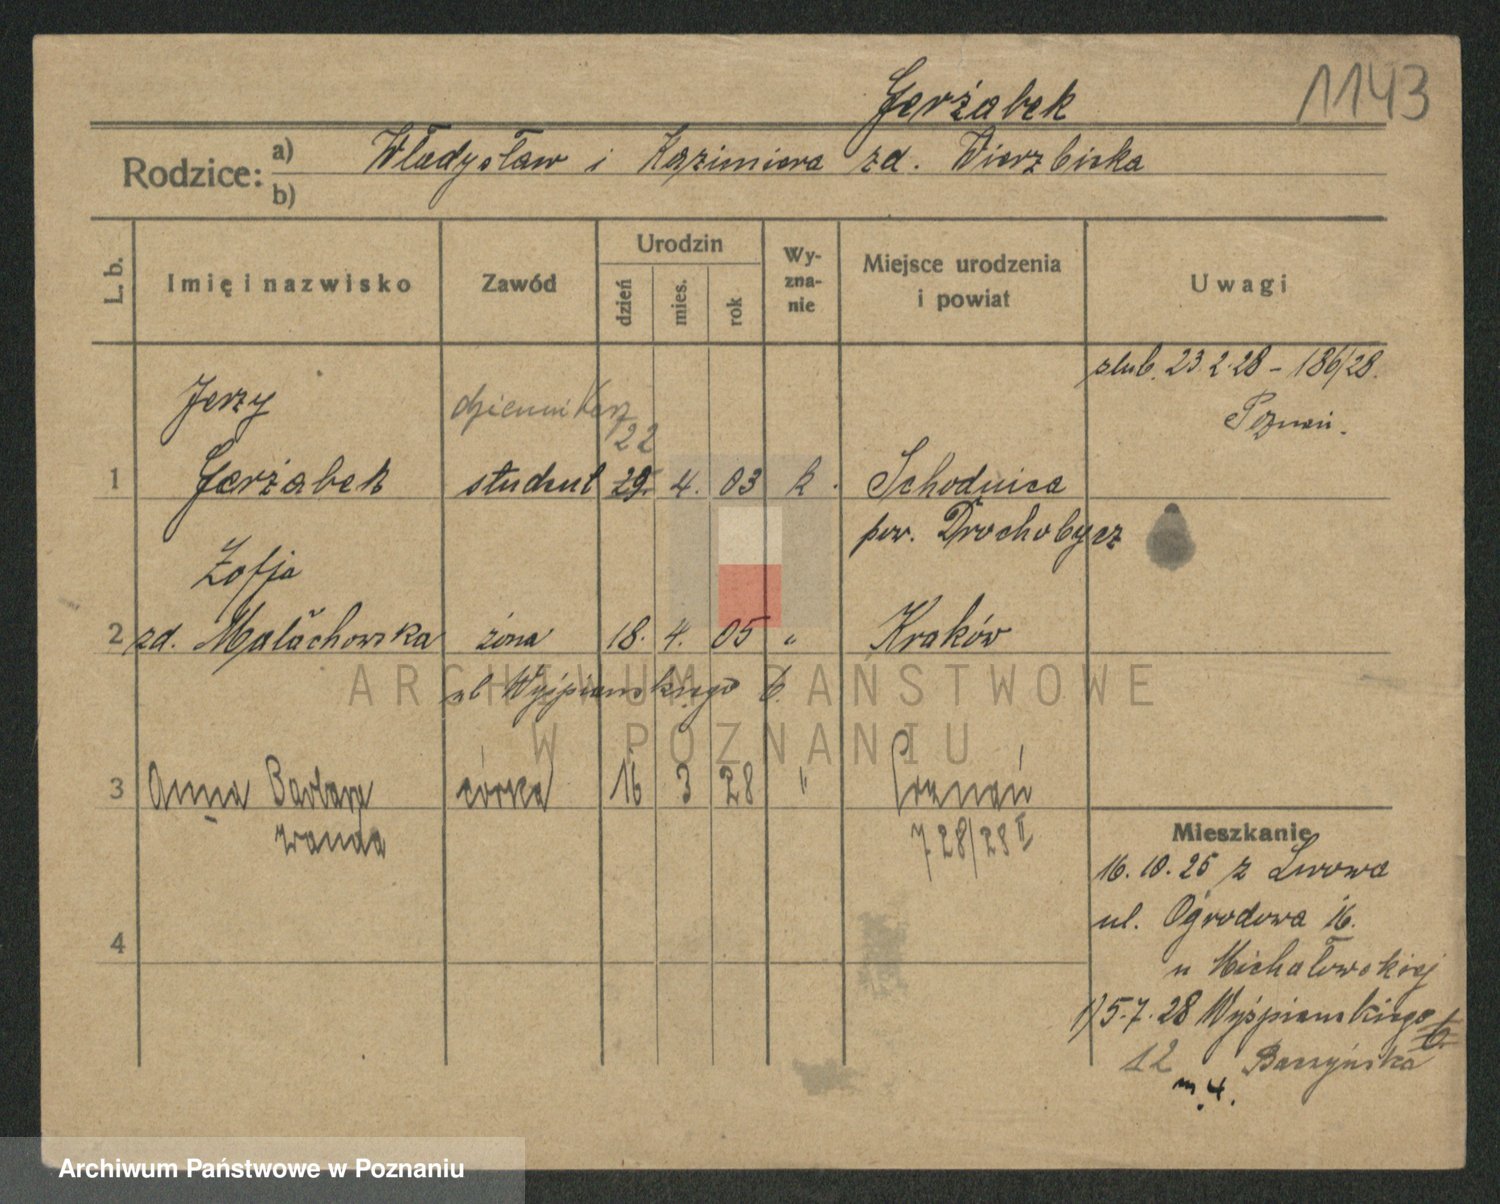 Jerżabek 1143
Rodzice: a) Władysław i Kazimiera zd. Wierzbicka
b)
L. b. Imię i nazwisko Zawód Urodzin dzień mies. rok Wyznanie Miejsce urodzenia i powiat Uwagi
ślub. 23.2.28 - 186/28.
Poznań.
Jerzy dziennikarz
22
1 Jerżabek student 29. 4. 03 k. Schodnica
pow. Drochobycz
Zofja
2 zd. Małachowska żona 18. 4. 05 " Kraków
ul Wyspiańskiego 6.
3 Anna Barbara córka 16 3 28 " Poznań
Wanda 728/28 II
Mieszkanie
16.10.25 z Lwowa
ul. Ogrodowa 16.
4
u Michałowskiej
1) 5.7.28 Wyśpiańskiego 6.
12
m. 4.
ARCHIWUM PAŃSTWOWE
W POZNANIU
Archiwum Państwowe w Poznaniu